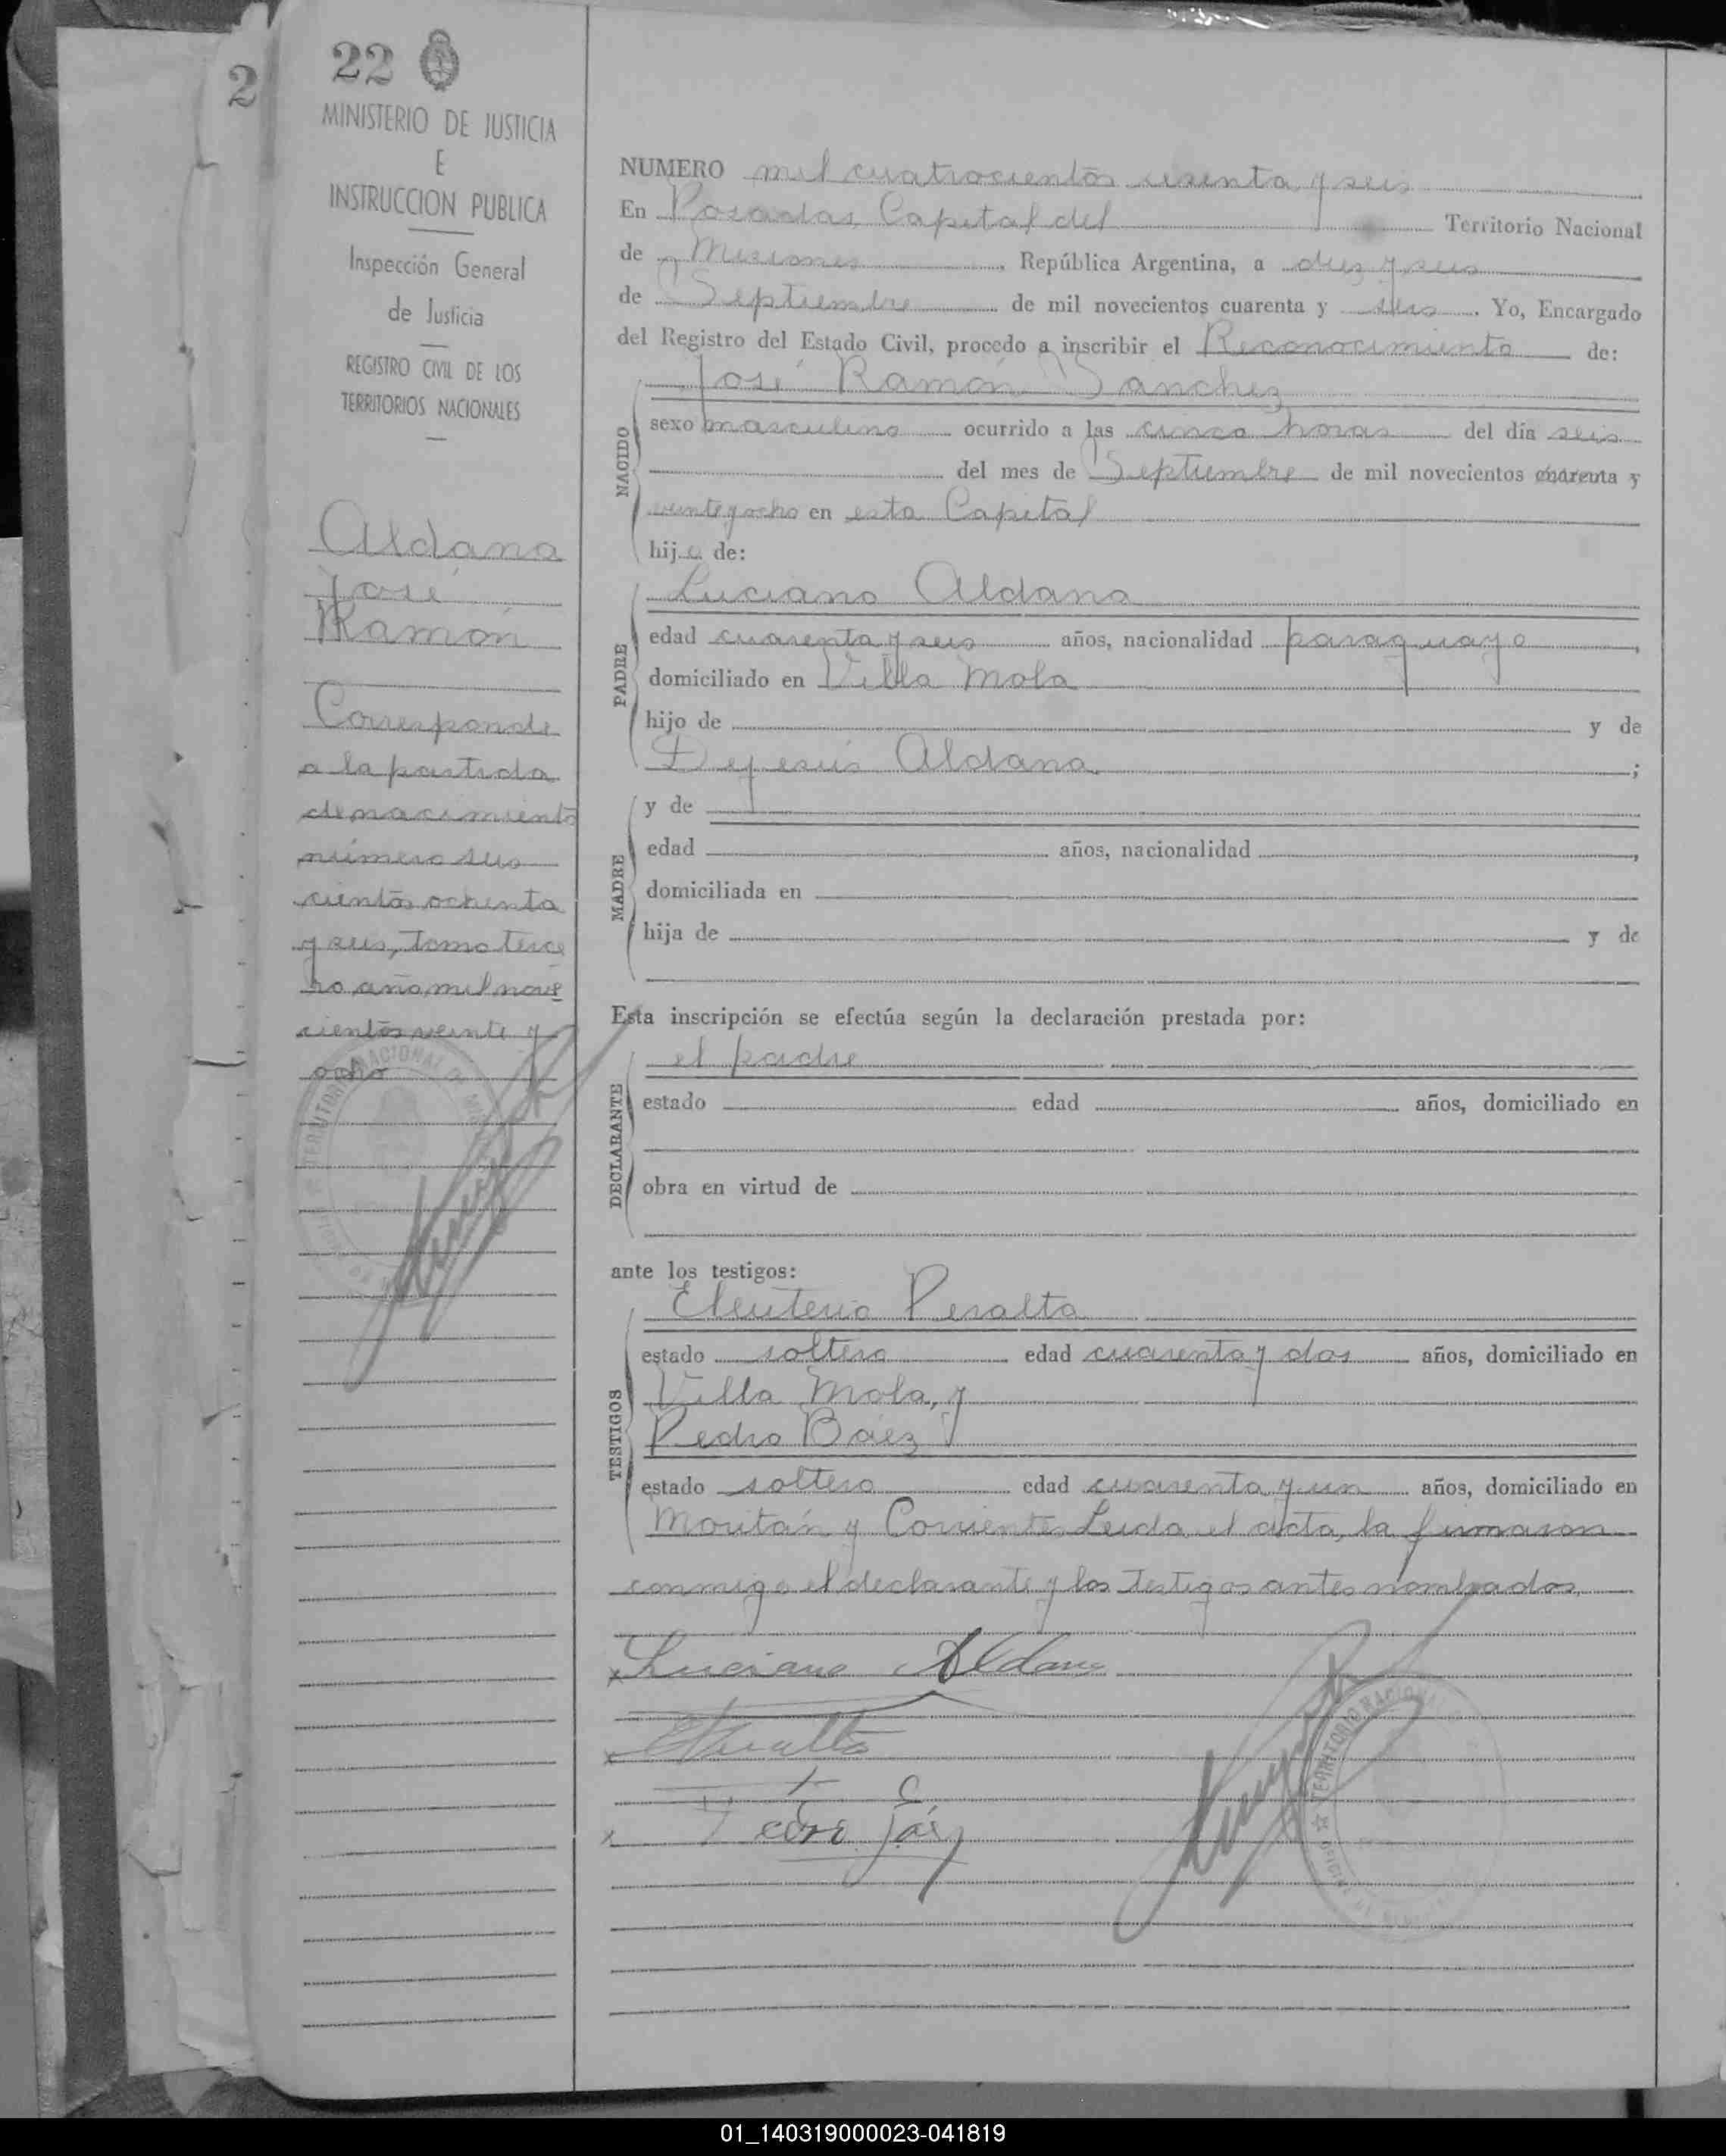 2
22
MINISTERIO DE JUSTICIA
E
INSTRUCCION PUBLICA
Inspección General
de Justicia
REGISTRO CIVIL DE LOS
TERRITORIOS NACIONALES
Aldana
José
Ramón
Corresponde
a la partida
de nacimiento
número seis
cientos ochenta
y seis, tomo terce
ro año mil nove
cientos veinte y
ocho
NUMERO mil cuatrocientos sesenta y seis
En Posadas, Capital del Territorio Nacional
de Misiones, República Argentina, a diez y seis
de Septiembre de mil novecientos cuarenta y seis. Yo, Encargado
del Registro del Estado Civil, procedo a inscribir el Reconocimiento de:
NACIDO
José Ramón Sanchez
sexo masculino ocurrido a las cinco horas del día seis
del mes de Septiembre de mil novecientos cuarenta y
veinte y ocho en esta Capital
hijo de:
PADRE
Luciano Aldana
edad cuarenta y seis años, nacionalidad paraguayo,
domiciliado en Villa Mola
hijo de y de
Dejesús Aldana;
MADRE
y de
edad años, nacionalidad,
domiciliada en
hija de y de
Esta inscripción se efectúa según la declaración prestada por:
DECLARANTE
el padre
estado edad años, domiciliado en
obra en virtud de
ante los testigos:
TESTIGOS
Eleuterio Peralta
estado soltero edad cuarenta y dos años, domiciliado en
Villa Mola, y
Pedro Báez
estado soltero edad cuarenta y un años, domiciliado en
y Corrientes. Leida el acta, la firmaron
conmigo el declarante y los testigos antes nombrados.
x Luciano Aldana
x EPeralta
x Pedro Báez
TERRITORIO NACIONAL
01_140319000023-041819